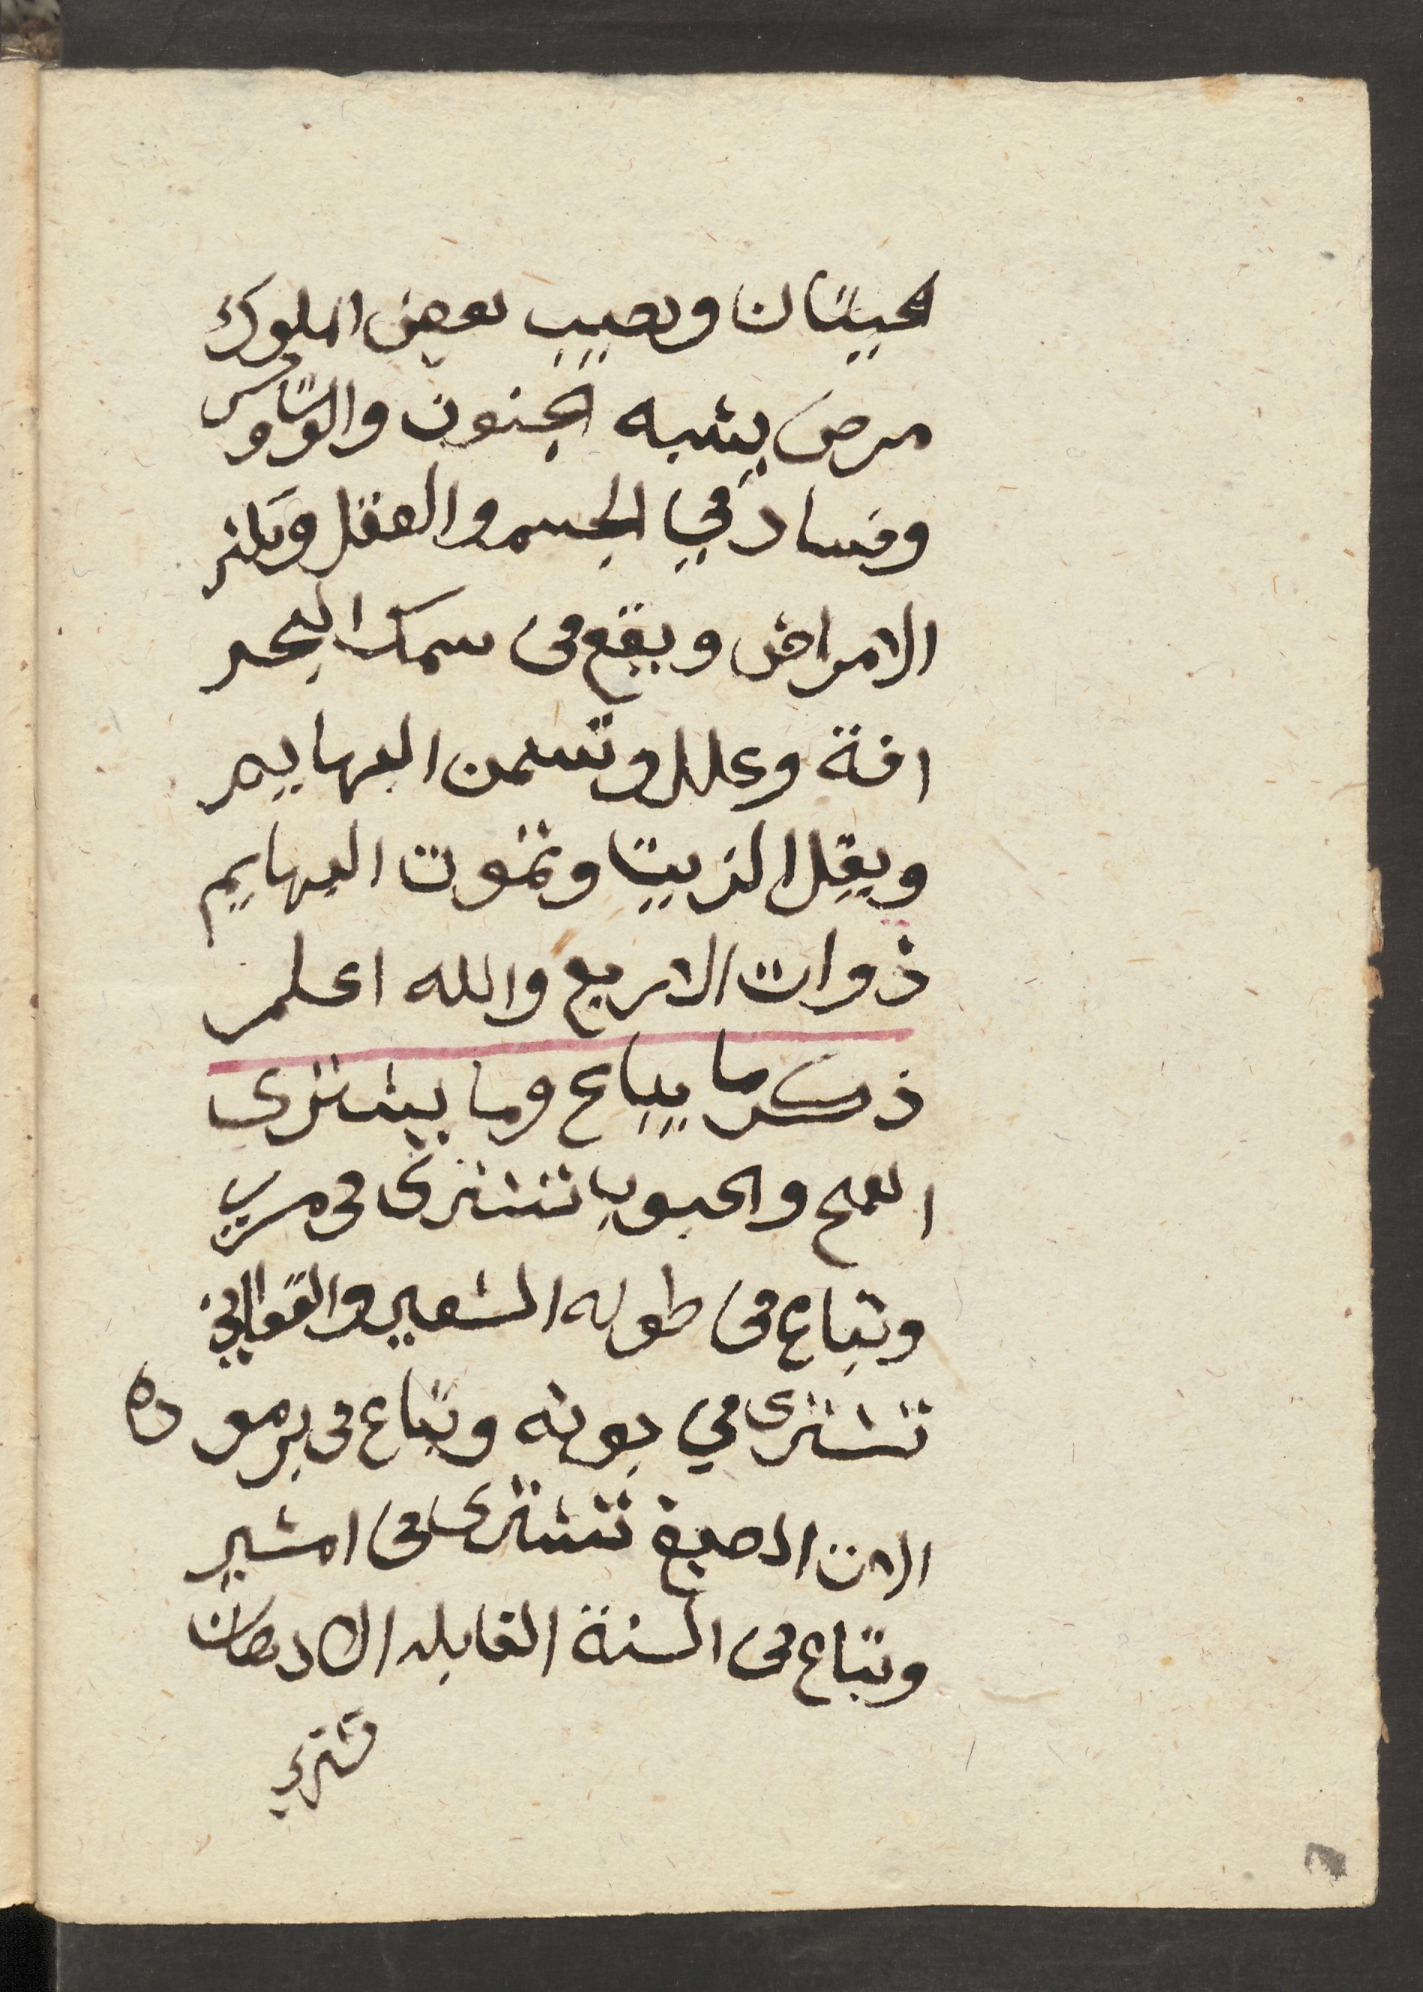 الحيتان ويصيب بعض الملوك
مرض يشبه الجنون والوسواس
وفساد في الجسم والعقل وتكثر
الامراض ويقع فى سمك البحر
افة وعلل وتسمن البهايم
ويقل الزيت وتموت البهايم
ذوات الاربع والله اعلم
ذكر ما يباع وما يشترى
القمح والحبوب تشترى فى مسرى
وتباع فى طوبه الشعير والفول
تشترى في بونه وتباع فى برموده
الات الصبغ تشترى فى امشير
وتباع فى السنة القابله الادهان
تشتري